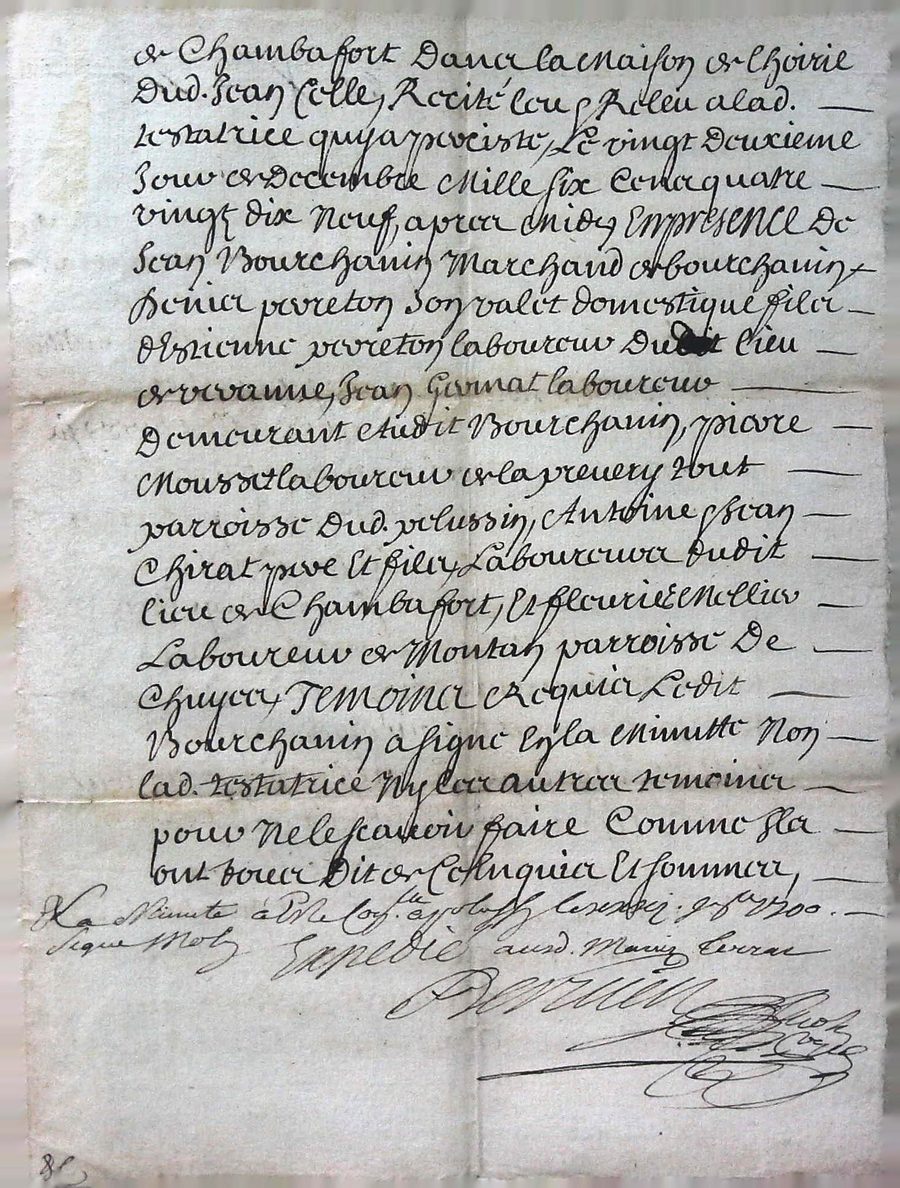 de Chambafort Dans la Maison de lhoirie
Dud. Jean Celle, Recité leu & Releu a lad.
testatrice quy a perciste, Le vingt Deuxieme
Jour de Decembre Mille six Cens quatre
vingt dix Neuf, apres Midy En presence De
Jean Bourchanin Marchand de bourchanin
Denis perreton Son valet domestique fils
dEstienne perreton laboureur Dudit lieu
de Jean laboureur
Demeurant Audit Bourchanin, pierre
Mousset laboureur de la prevery tout
parroisse Dud. pelussin, Antoine & Jean
Chirat pere Et fils, Laboureurs dudit
lieu de Chambafort, Et fleurie Mellier
Laboureur de Montan parroisse De
Chuyes, Temoins Requis Ledit
Bourchanin a signe En la Minutte Non
lad. testatrice Ny les autres temoins
pour Ne le scavoir faire Comme Ils
ont tous Dit de Ce Enquis Et sommes,
La Minute à 1700.
Signe Expedie aud.